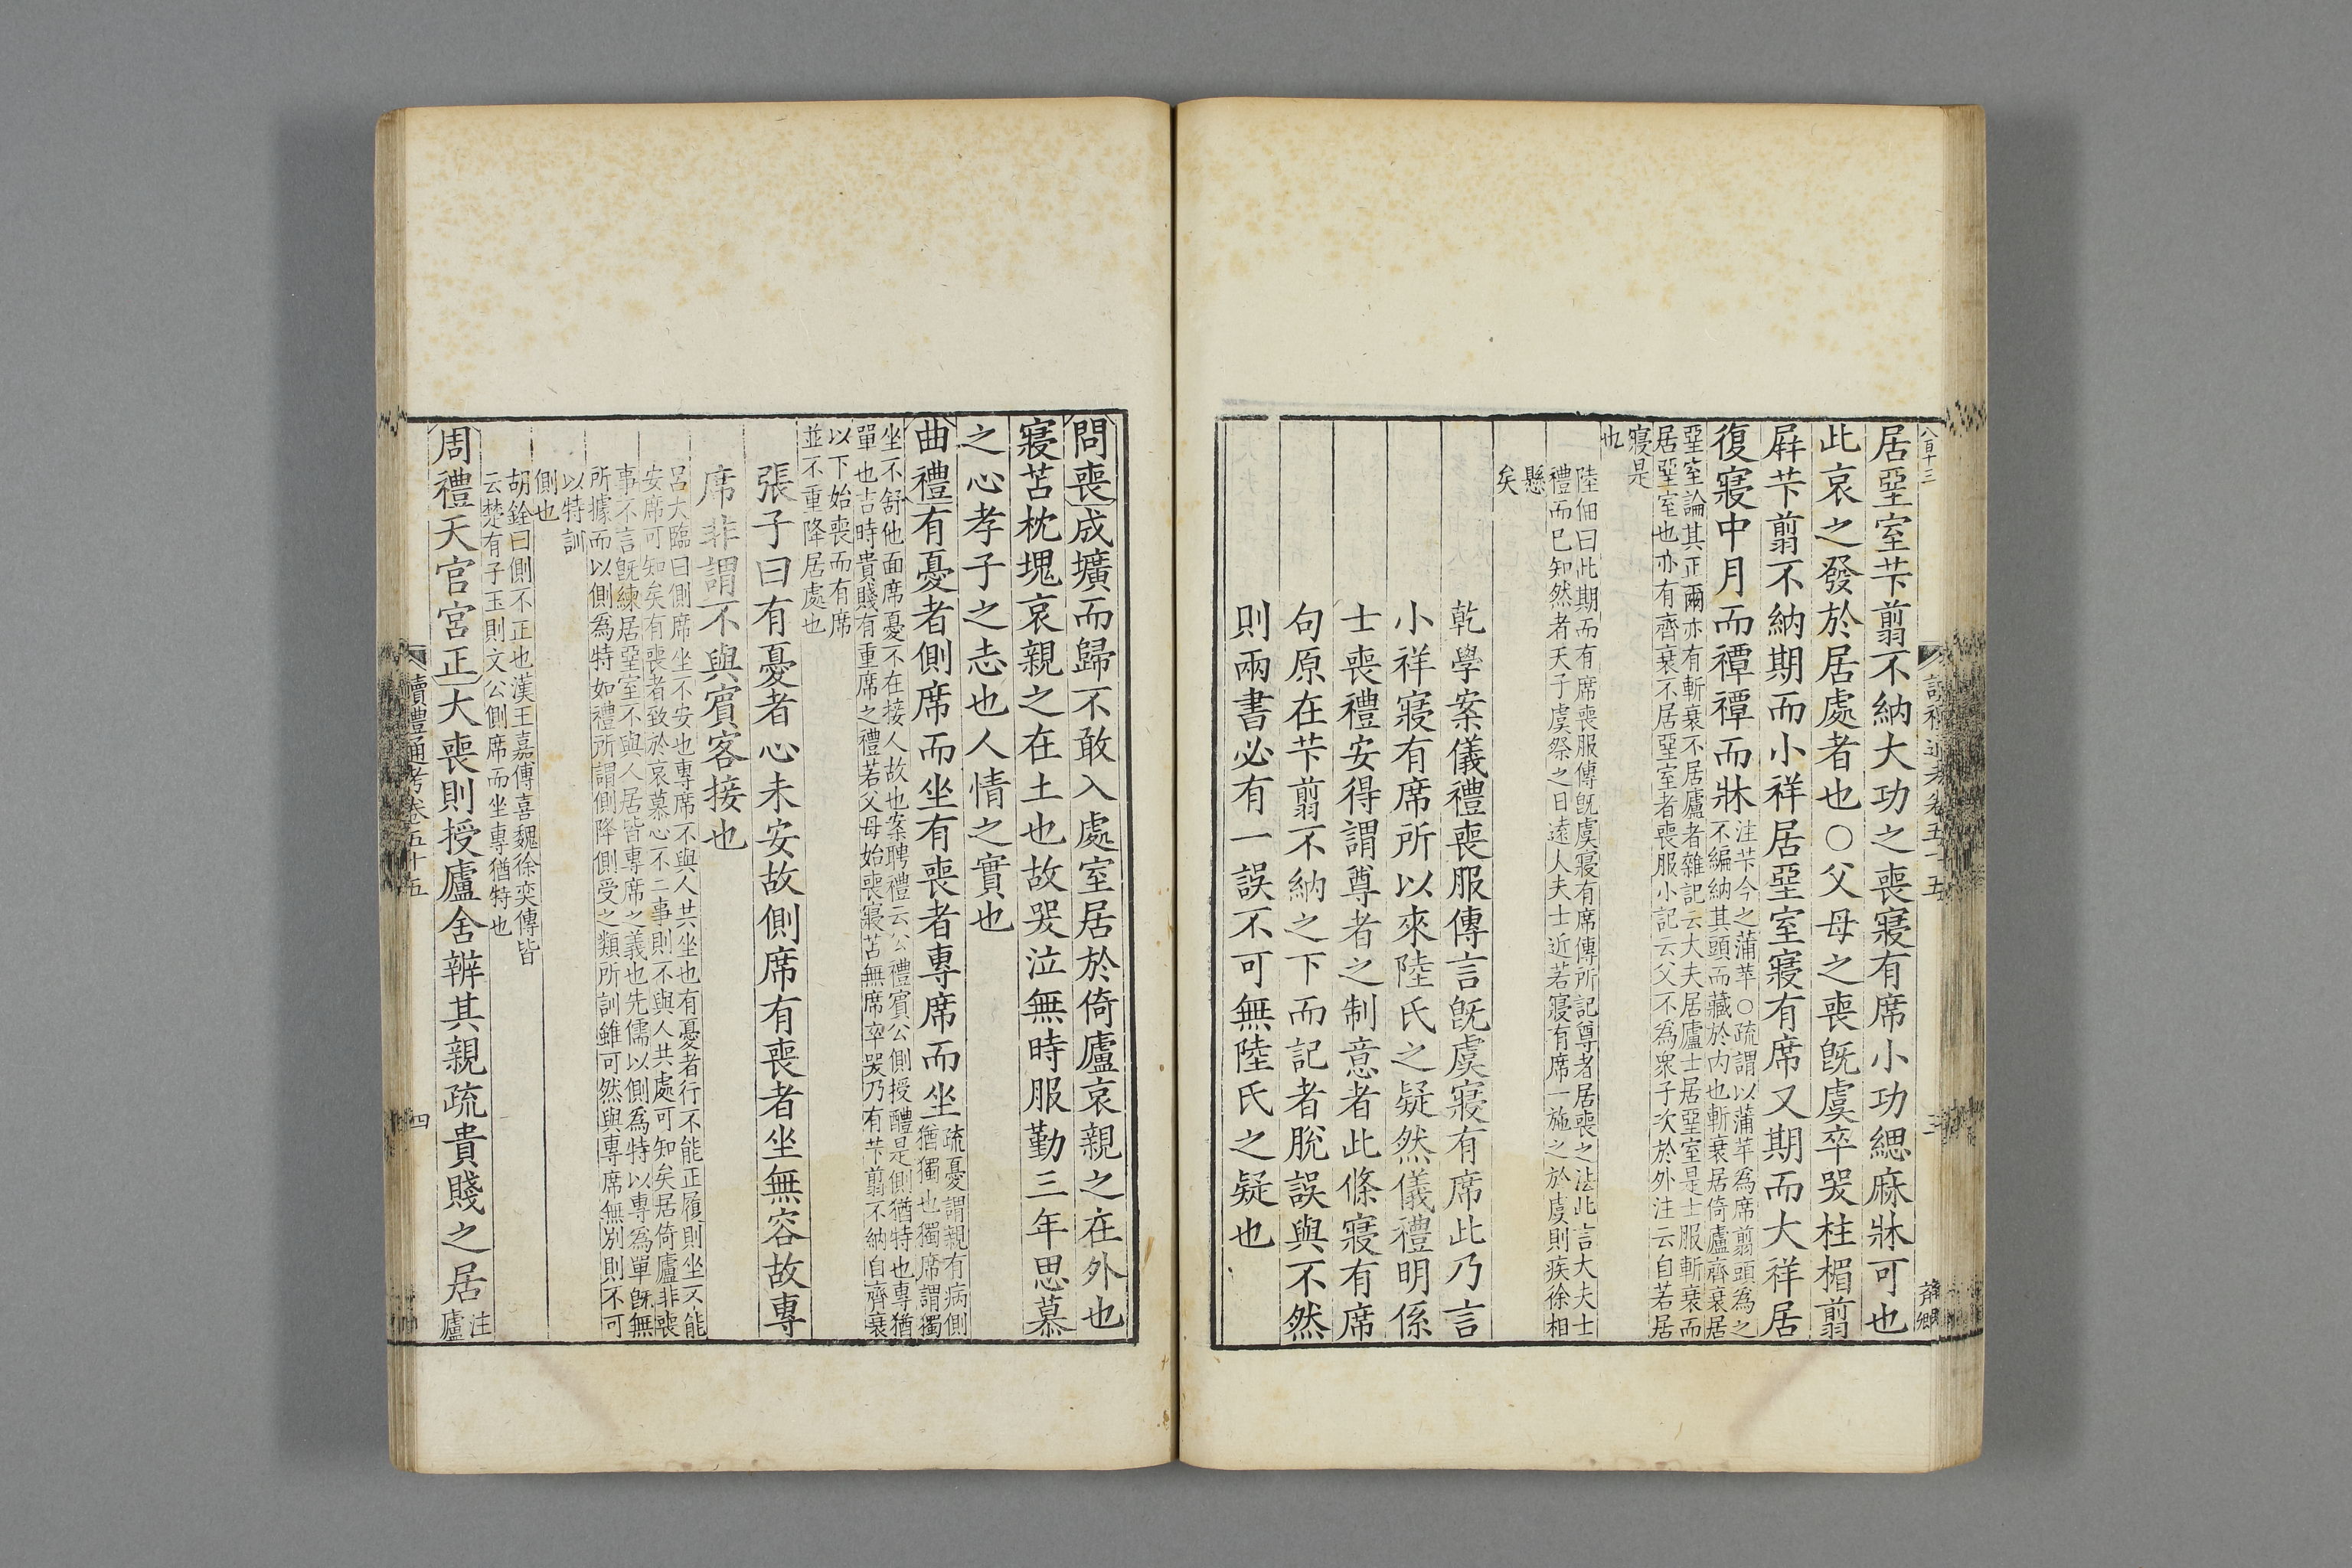 八百十三
讀禮通考卷五十五
三
居堊室芐翦不納大功之喪寢有席小功緦麻牀可也
此哀之發於居處者也○父母之喪旣虞卒哭柱楣翦
屛芐翦不納期而小祥居堊室寢有席又期而大祥居
復寢中月而禫禫而牀
注芐今之蒲苹○疏謂以蒲苹為席翦頭為之
不編納其頭而藏於內也斬衰居倚廬齊衰居
堊室論其正爾亦有斬衰不居廬者雜記云大夫居廬士居堊室是士服斬衰而
居堊室也亦有齊衰不居堊室者喪服小記云父不為衆子次於外注云自若居
寢是
也
陸佃曰此期而有席喪服傳旣虞寢有席傳所記尊者居喪之法此言大夫士
禮而已知然者天子虞祭之日遠人夫士近若寢有席一施之於虞則疾徐相
懸
矣
乾學案儀禮喪服傳言旣虞寢有席此乃言
小祥寢有席所以來陸氏之疑然儀禮明係
士喪禮安得謂尊者之制意者此條寢有席
句原在芐翦不納之下而記者脫誤與不然
則兩書必有一誤不可無陸氏之疑也
問喪成壙而歸不敢入處室居於倚廬哀親之在外也
寢苫枕塊哀親之在土也故哭泣無時服勤三年思慕
之心孝子之志也人情之實也
曲禮有憂者側席而坐有喪者專席而坐
疏憂謂親有病側
猶獨也獨席謂獨
坐不舒他面席憂不在接人故也案聘禮云公禮賓公側授醴是側猶特也專猶
單也古時貴賤有重席之禮若父母始喪寢苫無席卒哭乃有芐翦不納自齊衰
以下始喪而有席
並不重降居處也
張子曰有憂者心未安故側席有喪者坐無容故專
席非謂不與賓客接也
呂大臨曰側席坐不安也專席不與人共坐也有憂者行不能正履則坐又能
安席可知矣有喪者致於哀慕心不二事則不與人共處可知矣居倚廬非喪
事不言旣練居堊室不與人居皆專席之義也先儒以側為特以專為單旣無
所據而以側為特如禮所謂側降側受之類所訓雖可然與專席無別則不可
以特訓
側也
胡銓曰側不正也漢王嘉傳喜魏徐奕傳皆
云楚有子玉則文公側席而坐專猶特也
周禮天官宮正大喪則授廬舍辨其親疏貴賤之居
注
廬
讀禮通考卷五十五
四